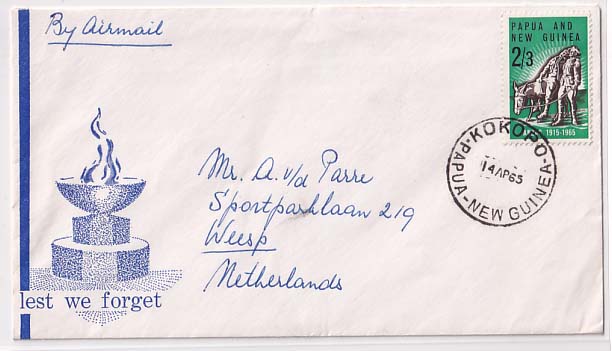 By Airmail
PAPUA AND
NEW GUINEA
2/3
1915-1965
KOKOPO
14AP65
-PAPUA-NEW GUINEA-
Mr. A. v/d Parre
Sportparklaan 219
Weesp
Netherlands
lest we forget